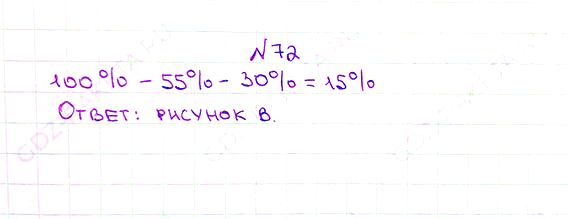 N72
100% - 55% - 30% = 15%
Ответ: рисунок В.